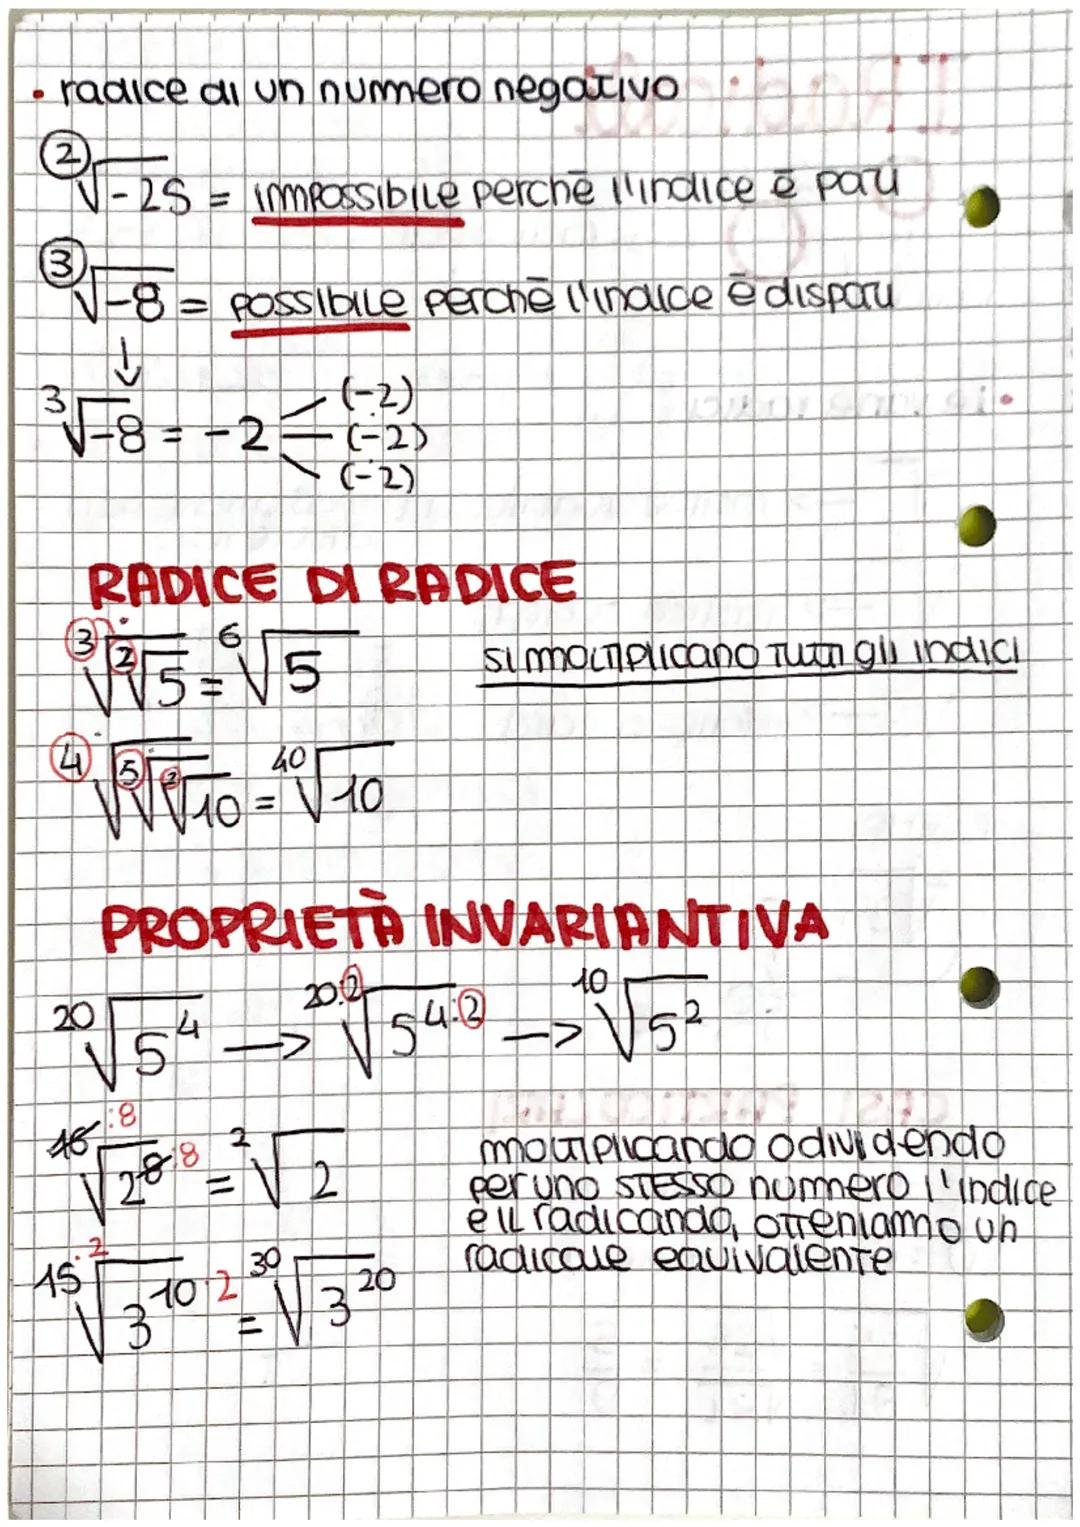 • radice di un numero negativo
②√-25 = impossibile perchē l'indice ē pari
③√-8 = possibile perchē l'indice ē dispari
↓
³√-8 = -2 (-2)
(-2)
(-2)
RADICE DI RADICE
³√²√5 = ⁶√5 si moltiplicano tutti gli indici
⁴√⁵√²√10 = ⁴⁰√10
PROPRIETÀ INVARIANTIVA
²⁰√5⁴ –> ²⁰:²√5⁴:² –> ¹⁰√5²
¹⁶:⁸√2⁸:⁸ = ²√2
moltiplicando o dividendo
per uno STESSO numero l'indice
e il radicando, otteniamo un
radicale equivalente
¹⁵·²√3¹⁰·² = ³⁰√3²⁰